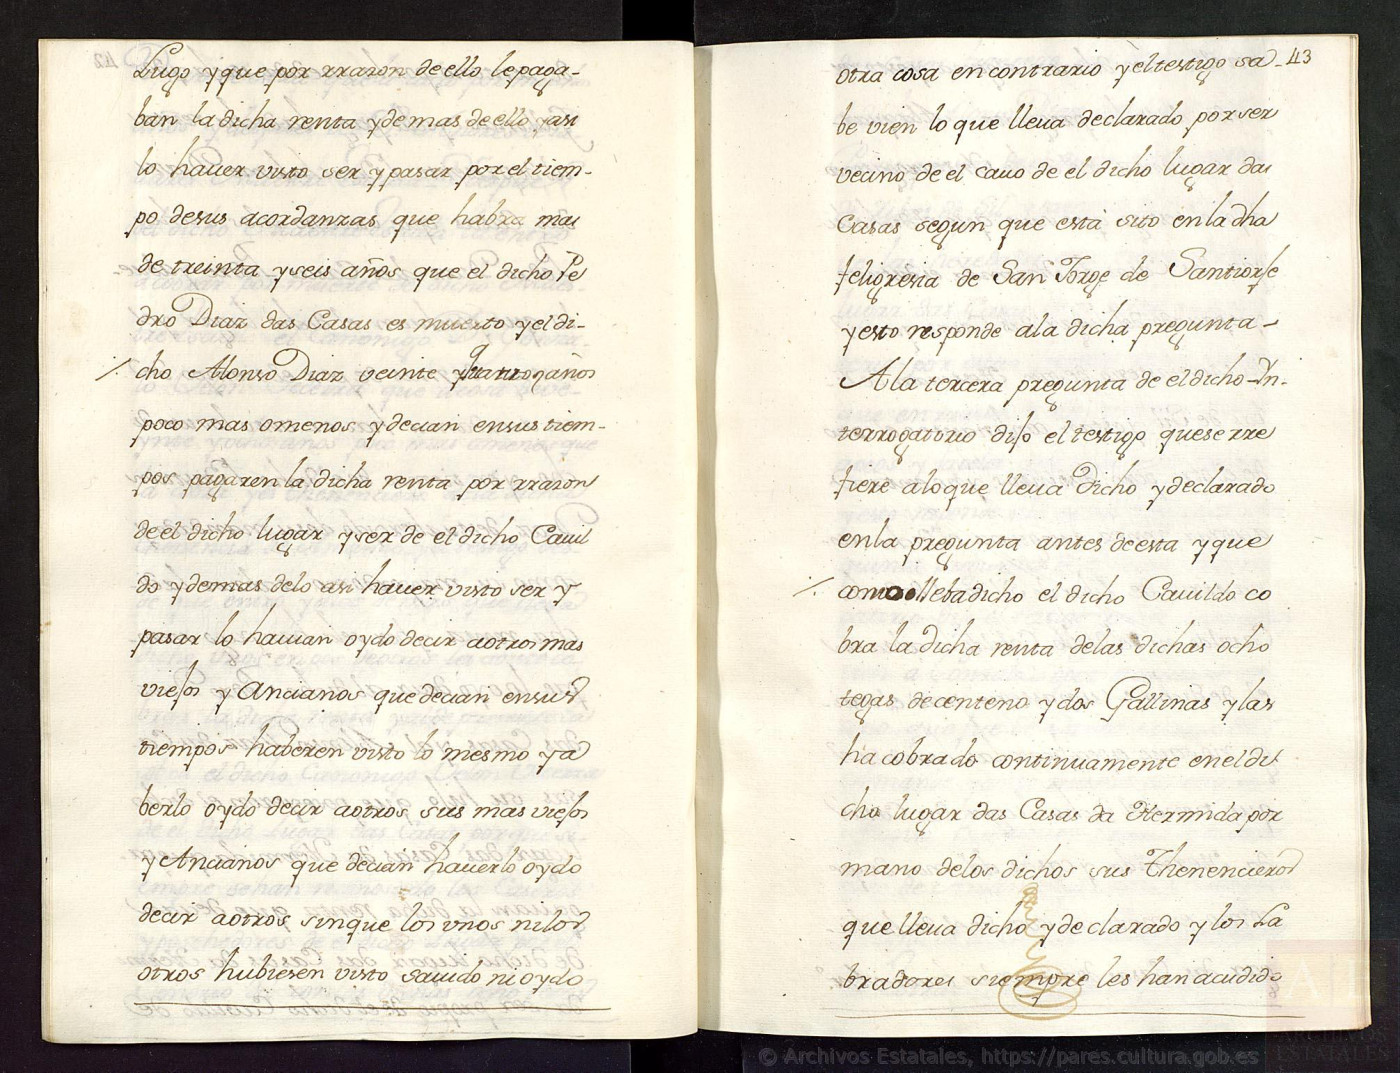 Lugo y que por rrazon de ello le paga-
ban la dicha renta y demas de ello y asi
lo hauer visto ser y pasar por el tiem-
po de sus acordanzas que habra mas
de treinta y seis años que el dicho Pe
dro Diaz das Casas es muerto y el di-
cho Alonso Diaz veinte y quatro años
poco mas o menos y decian en sus tiem-
pos pagaren la dicha renta por rrazon
de el dicho lugar y ser de el dicho Cauil
do y demas de lo asi hauer visto ser y
pasar lo hauian oydo decir a otros mas
viejos y Ancianos que decian en sus
tiempos haberen visto lo mesmo y a
berlo oydo decir a otros sus mas viejos
y Ancianos que decian hauerlo oydo
decir a otros sin que los unos ni los
otros hubiesen visto sauido ni oydo
43
otra cosa en contrario y el testigo sa-
be vien lo que lleua declarado por ser
vecino de el cauo de el dicho lugar das
Casas segun que está sito en la dha
feligresia de San Jorge de Santiorse
y esto responde a la dicha pregunta-
A la tercera pregunta de el dicho Yn-
terrogatorio dijo el testigo que se rre
fiere a lo que lleua dicho y declarado
en la pregunta antes de esta y que
como lleba dicho el dicho Cauildo co
bra la dicha renta de las dichas ocho
tegas de centeno y dos Gallinas y las
ha cobrado continuamente en el di
cho lugar das Casas da Hermida por
mano de los dichos sus Thenencieros
que lleua dicho y declarado y los La
bradores siempre les han acudido
© Archivos Estatales, https://pares.cultura.gob.es
ARCHIVOS
ESTATALES